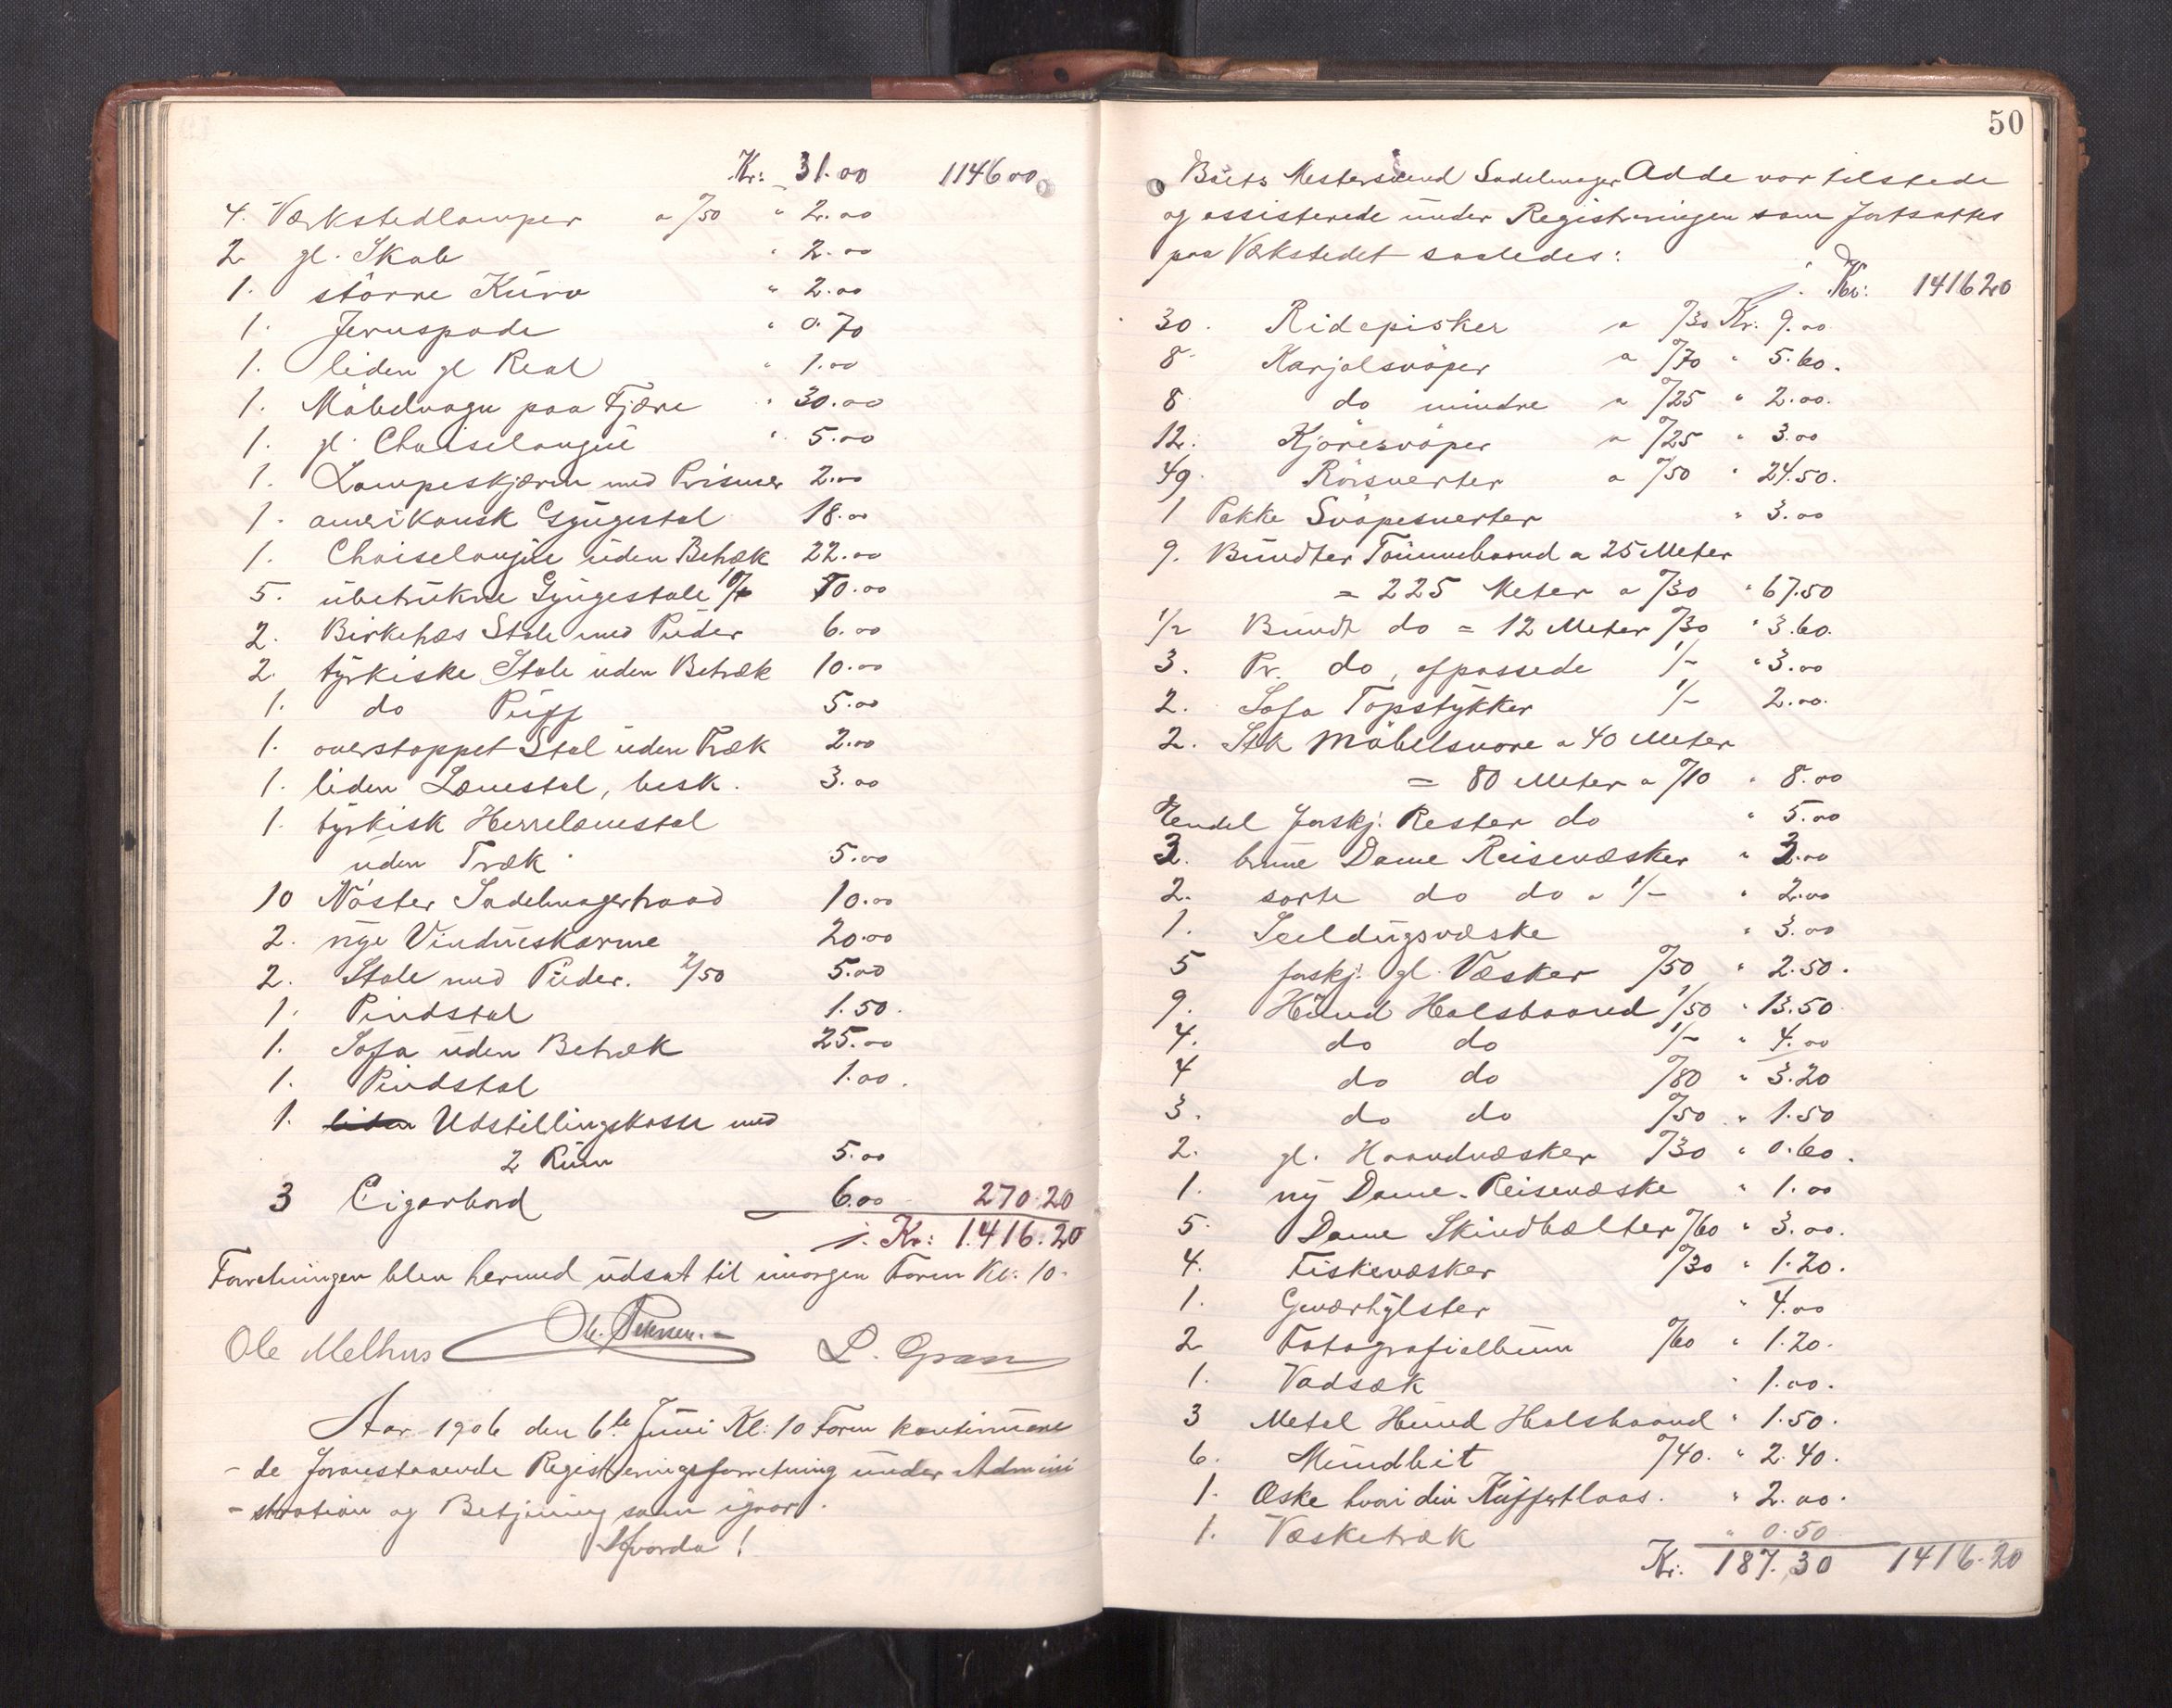 Kr: 31.00 1146 00
4. Værkstedlamper a "/50 " 2.00
2 gl. Skab " 2.00
1. större Kurv " 2.00
1. Jernspade " 0.70
1. liden gl Reol " 1.00
1. Möbelvogn paa Fjære " 30.00
1. gl. Chaiselongue " 5.00
1. Lampeskjærm med Prismer 2.00
1. amerikansk Gyngestol 18.00
1. Chaiselongue uden Betræk 22.00
5. ubetrukne Gyngestole 10/- 50.00
2. Birketræs Stole med Puder 6.00
2. tyrkiske Stole uden Betræk 10.00
1. do Puff 5.00
1. overstoppet Stol uden Træk 2.00
1. liden Lænestol, besk. 3.00
1. tyrkisk Herrelænestol
uden Træk. 5.00
10 Nöster Sadelmagertraad 10.00
2. nye Vindueskarme 20.00
2. Stole med Puder. 2/50 5.00
1. Pindstol 1.50.
1. Sofa uden Betræk 25.00
1. Pindstol 1.00.
1. liden Udstillingskasse med
2 Rum 5.00
3 Cigarbord 6.00 270.20
Kr: 1.416.20
Forretningen blev hermed udsat til imorgen Form Kl: 10.
Ole Melhus Ol. Petersen. L. Gran
Aar 1906 den 6te Juni Kl: 10 Form kontinuere
- de foranstaaende Registreringsforretning under Admini
- stration og Betjening som igaar.
Hvorda!
50
Boets Mestersvend Sadelmager Adde var tilstede
og assisterede under Registreringen som fortsattes
paa Værkstedet saaledes:
Kr: 1416 20
30. Ridepisker a "/30 Kr. 9.00
8. Karjolsvöper a "/70 " 5.60.
8 do mindre a "/25 " 2.00.
12. Kjöresvöper a "/25 " 3.00
49. Rörsnerter a "/50 " 24.50.
1 Pakke Svöpesnerter " 3.00
9. Bundter Tömmebaand a 25 Meter
= 225 Meter a "/30 " 67.50
1/2 Bundt do = 12 Meter "/30 " 3.60.
3. Pr. do, afpassede 1/- " 3.00
2. Sofa Topstykker 1/- 2.00.
2. Stk Möbelsnore a 40 Meter
= 80 Meter a "/10 " 8.00
Endel forskj. Rester do " 5.00
3. brune Dame Reisevæsker " 3.00
2. sorte do do a 1/- " 2.00
1. Seildugsvæske " 3.00
5 forskj. gl. Væsker "/50 " 2.50.
9. Hund Halsbaand 1/50 " 13.50
4. do do 1/- " 4.00
4 do do "/80 " 3.20
3. do do "/50 " 1.50
2. gl. Haandvæsker "/30 " 0.60.
1. ny Dame-Reisevæske " 1.00
5. Dame Skindbælter "/60 " 3.00.
4. Fiskevæsker "/30 " 1.20.
1. Geværhylster " 4.00
2 Fotografialbum "/60 " 1.20.
1. Vadsæk " 1.00.
3 Metal Hund Halsbaand " 1.50.
6. Mundbit "/40. " 2.40.
1. Æske hvori div Kuffertlaas. " 2.00.
1. Væsketræk " 0.50
Kr. 187.30 1416.20